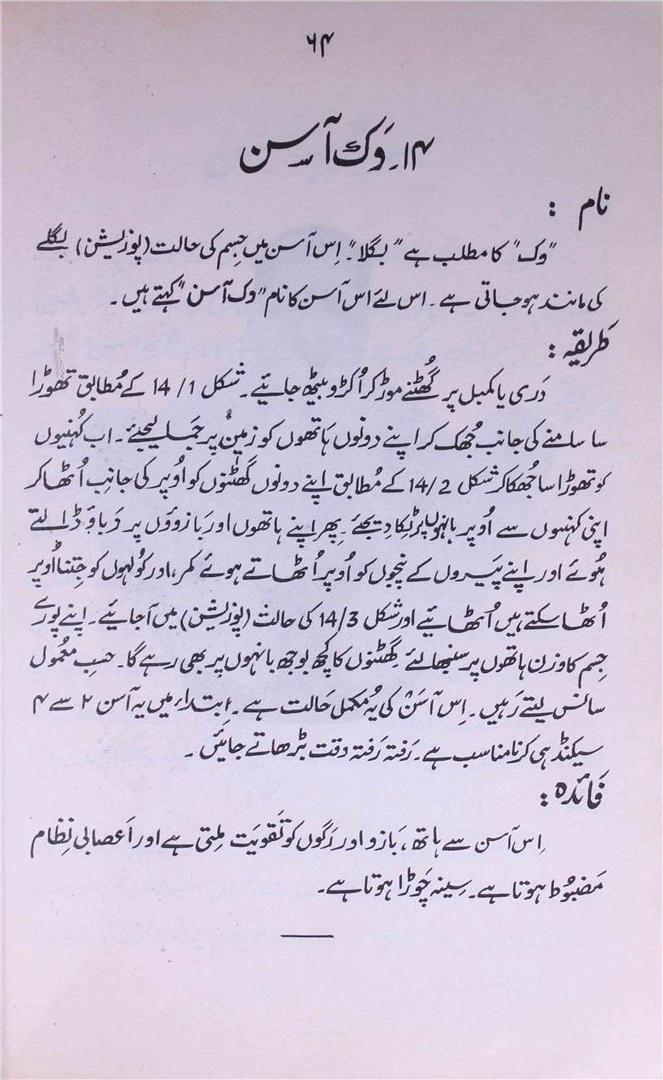 ۶۴
۱۴۔ وَک آسن
نام :
”وک“ کا مطلب ہے ”بگلا“۔ اِس آسن میں جسم کی حالت (پوزیشن) بگلے
کی مانند ہو جاتی ہے۔ اس لئے اس آسن کا نام ”وک آسن“ کہتے ہیں۔
طریقہ :
دَری یا کمبل پر گھُٹنے موڑ کر اُکڑو بیٹھ جائیے۔ شکل 14/1 کے مُطابق تھوڑا
سا سامنے کی جانب جھُک کر اپنے دونوں ہاتھوں کو زمین پر جما لیجئے۔ اب کُہنیوں
کو تھوڑا سا جھُکا کر شکل 14/2 کے مُطابق اپنے دونوں گھٹنوں کو اُوپر کی جانب اُٹھا کر
اپنی کہنیوں سے اُوپر بانہوں پر ٹِکا دیجئے۔ پھر اپنے ہاتھوں اور بازوؤں پر دَباؤ ڈالتے
ہُوئے اور اپنے پَیروں کے پنجوں کو اُوپر اُٹھاتے ہوئے کمر، اور کولہوں کو جِتنا اُوپر
اُٹھا سکتے ہیں اُٹھائیے اور شکل 14/3 کی حالت (پوزیشن) میں آ جائیے۔ اپنے پورے
جِسم کا وزن ہاتھوں پر سنبھالئے گھُٹنوں کا کچھ بوجھ بانہوں پر بھی رہے گا۔ حسبِ معمول
سانس لیتے رَہیں۔ اِس آسَن کی یہ مُکمل حَالت ہے۔ اِبتداء میں یہ آسن ۲ سے ۴
سیکنڈ ہی کرنا مناسب ہے۔ رَفتہ رَفتہ وقت بڑھاتے جائیں۔
فَائدہ :
اِس آسن سے ہاتھ، بَازو اور رَگوں کو تقویَت مِلتی ہے اور اَعصابی نِظام
مَضبُوط ہوتا ہے۔ سِینہ چَوڑا ہوتا ہے۔